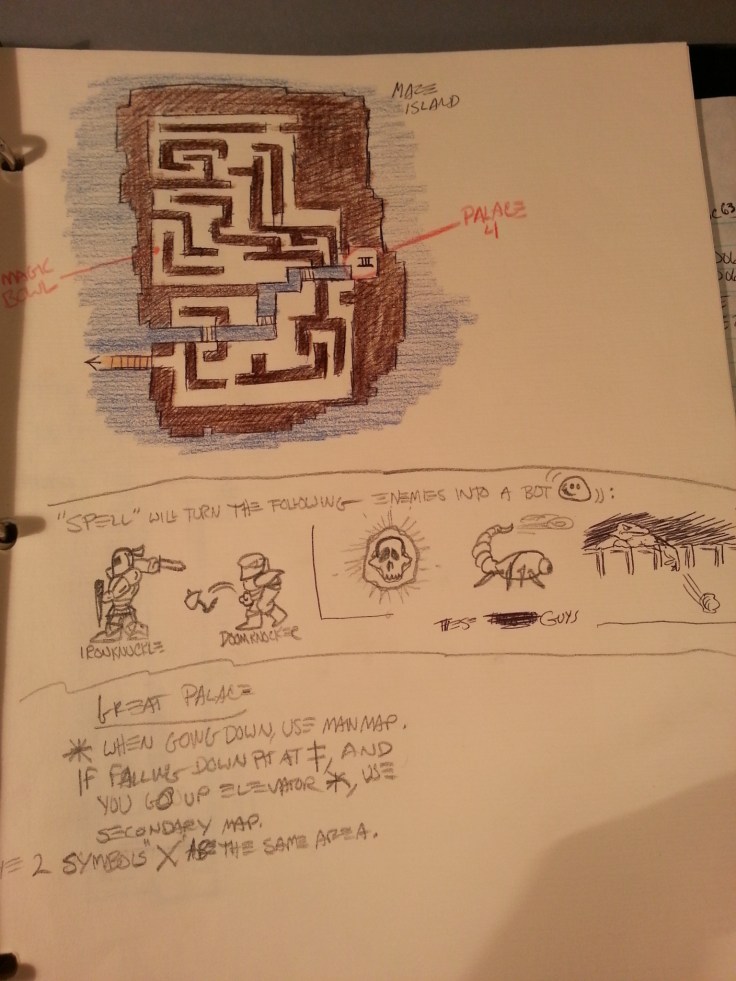 MAZE
ISLAND
PALACE
4
III
MAGIC
BOWL
"SPELL" WILL TURN THE FOLLOWING ENEMIES INTO A BOT :
IRONKNUCKLE
DOOMKNOCKER
GUYS
GREAT PALACE
* WHEN GOING DOWN, USE MAIN MAP.
IF FALLING DOWN PIT AT ‡, AND
YOU GO UP ELEVATOR *, USE
SECONDARY MAP.
2 SYMBOLS "X" ARE THE SAME AREA.
63